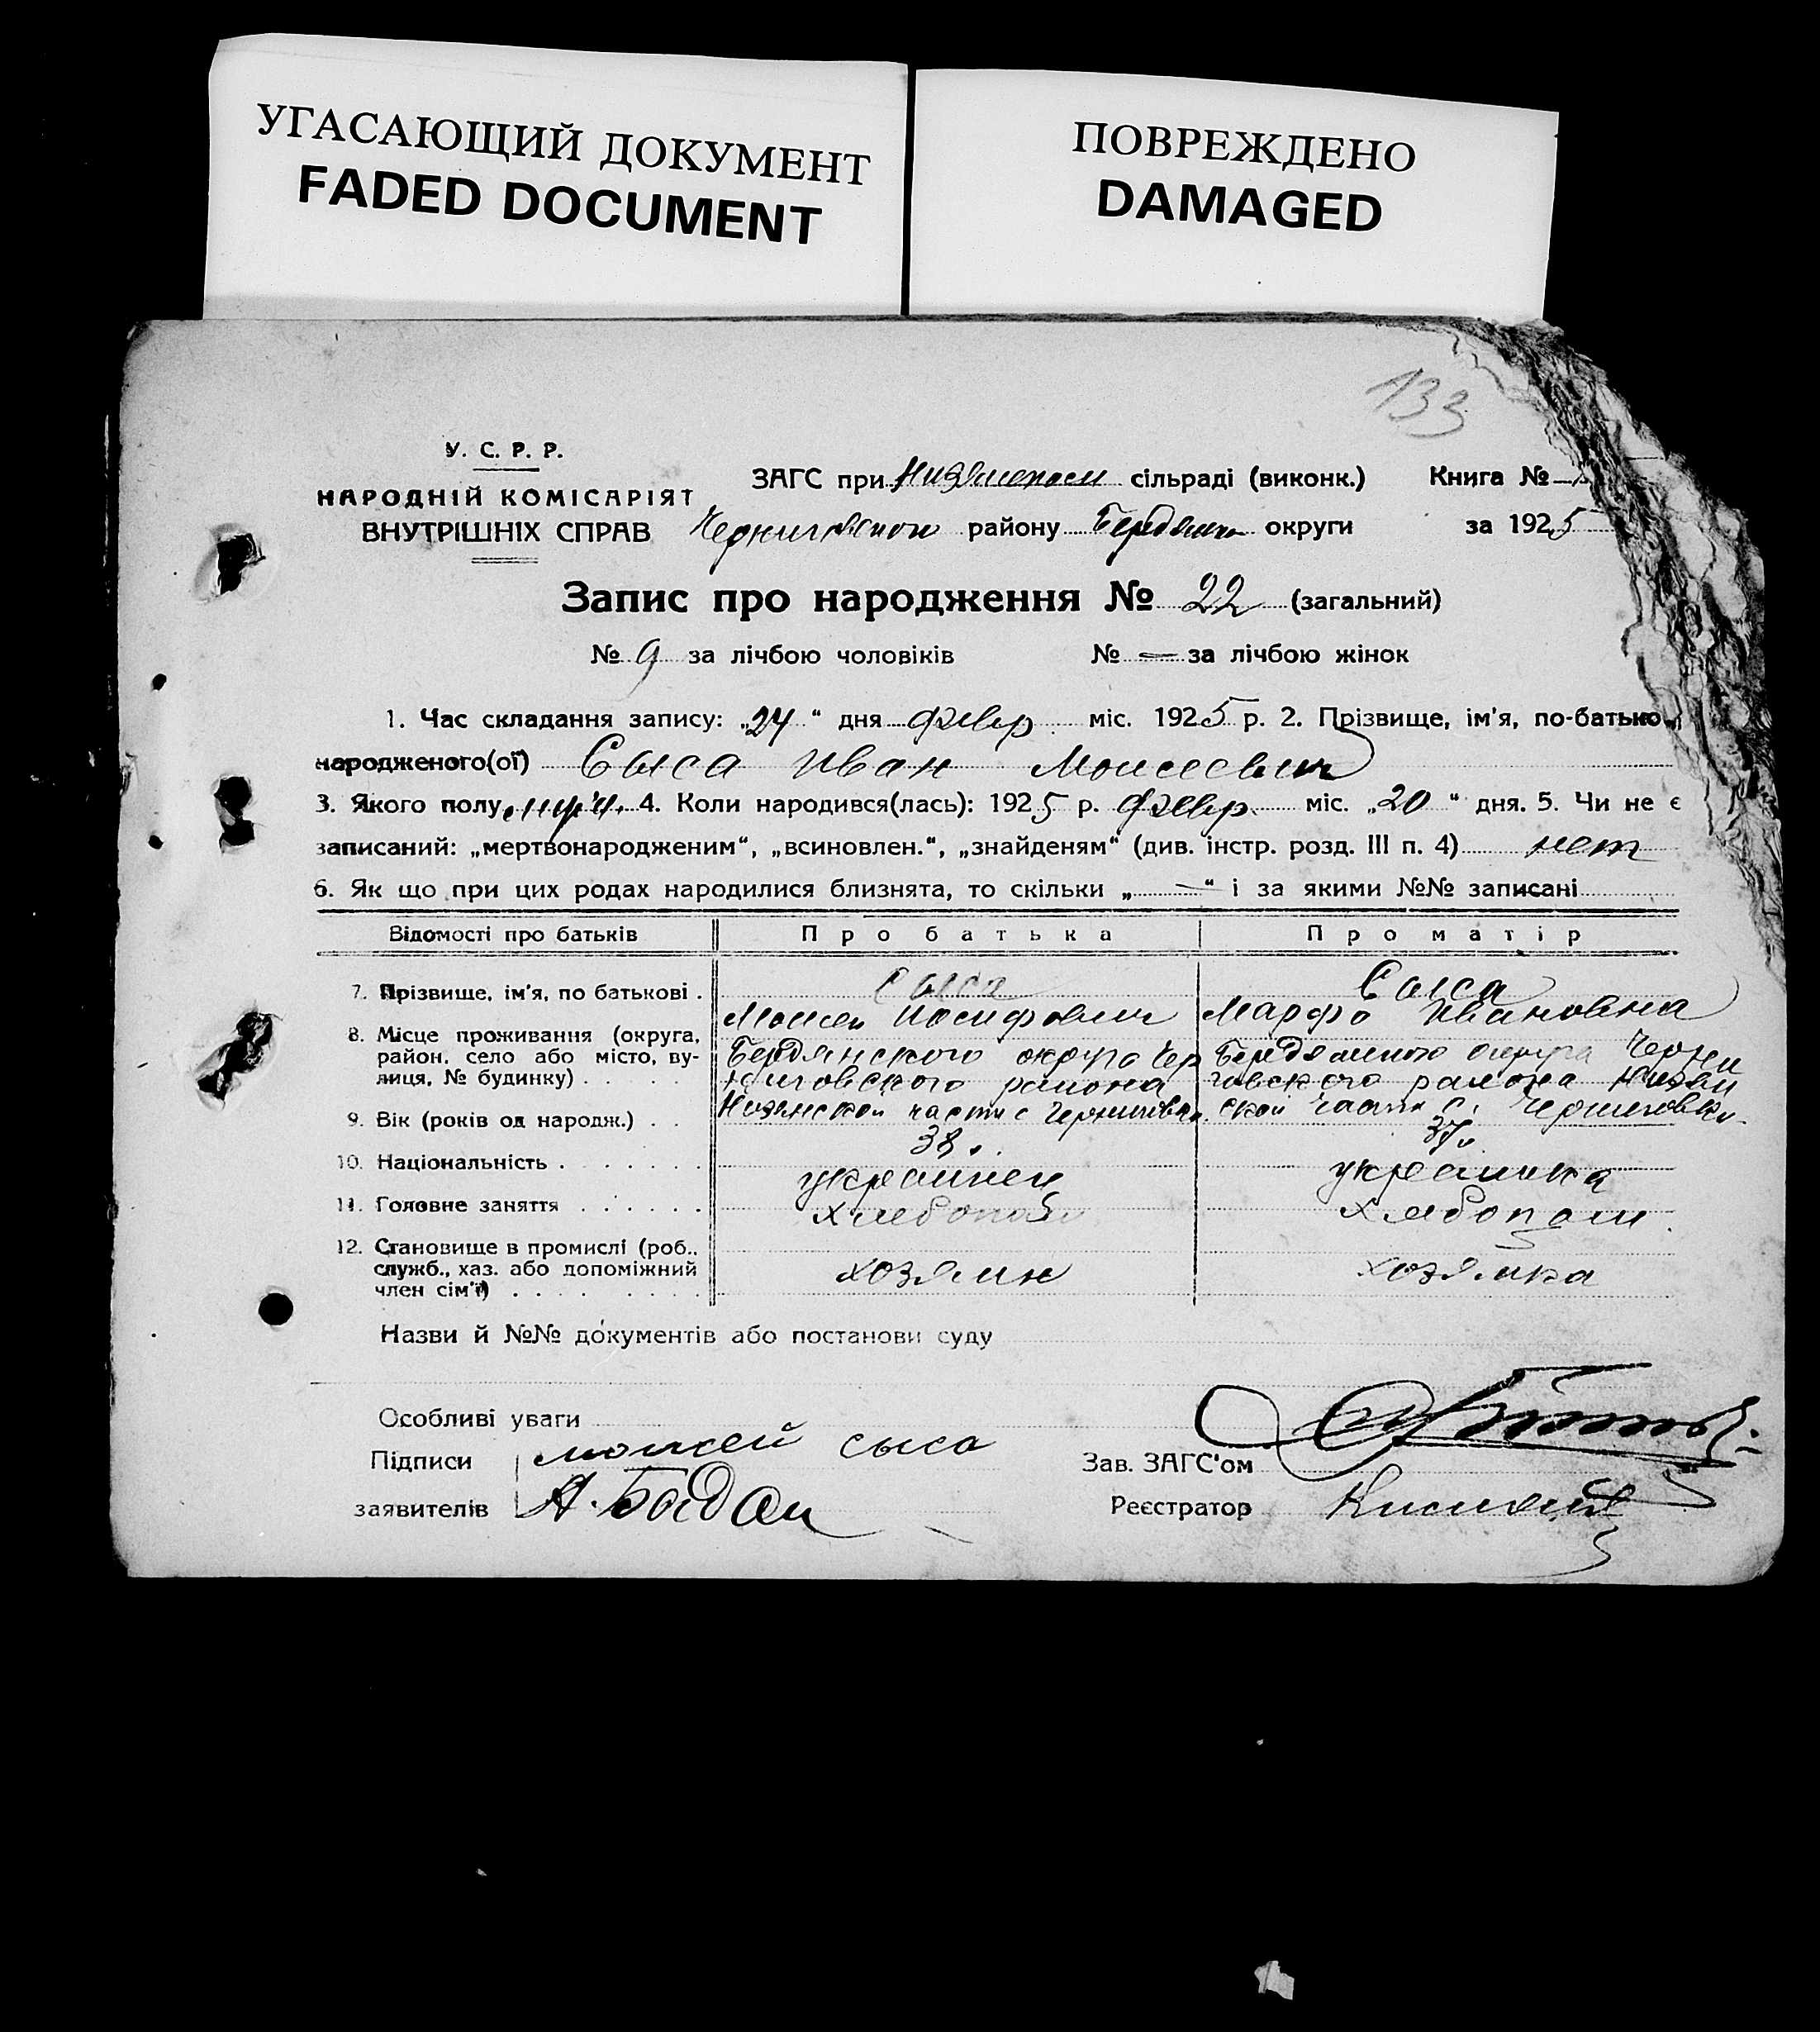 УГАСАЮЩИЙ ДОКУМЕНТ
FADED DOCUMENT
ПОВРЕЖДЕНО
DAMAGED
133
У. С. Р. Р.
НАРОДНІЙ КОМІСАРІЯТ
ВНУТРІШНІХ СПРАВ
ЗАГС при сільраді (виконк.) Книга №
району округи за 1925
Запис про народження № 22 (загальний)
№ 9 за лічбою чоловіків № — за лічбою жінок
1. Час складання запису: „24“ дня февр. міс. 1925 р. 2. Прізвище, ім'я, по-батьков,
народженого(ої) Сыса Иван Моисеевич
3. Якого полу муж. 4. Коли народився(лась): 1925 р. февр. міс. „20“ дня. 5. Чи не є
записаний: „мертвонародженим“, „всиновлен.“, „знайденям“ (див. інстр. розд. III п. 4) нет
6. Як що при цих родах народилися близнята, то скільки „—“ і за якими №№ записані
Відомості про батьків Про батька Про матір
7. Прізвище, ім'я, по батькові . Сыса Сыса
Моисей Иосифович Марфа Ивановна
8. Місце проживання (округа, район, село або місто, вулиця, № будинку) . . . . .
Бердянского округа Чер
ниговского района
части с Черниговки
Бердянского округа Черни
говского района
ской части с. Черниговки
9. Вік (років од народж.) . . 38 37
10. Національність . . . . . . . украинец украинка
11. Головне заняття . . . . . . хлебопаш хлебопаш.
12. Становище в промислі (роб., служб., хаз. або допоміжний член сім'ї) . . . . . . . . хозяин хозяйка
Назви й №№ документів або постанови суду
Особливі уваги
Підписи моисей сыса
заявителів А. Бадан
Зав. ЗАГС'ом
Реєстратор